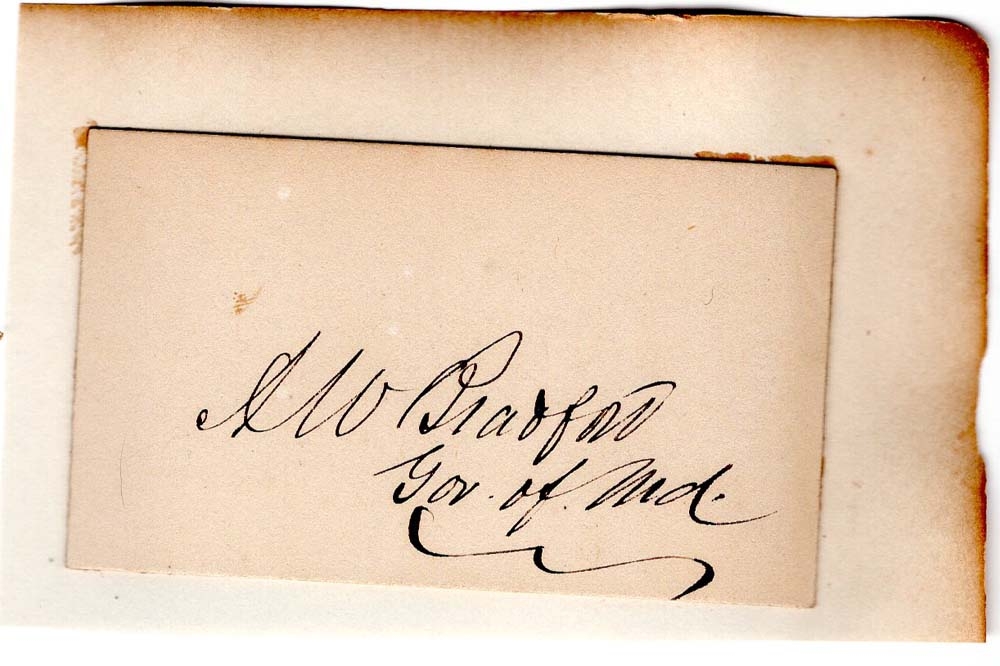 A W Bradford
Gov. of. Md.